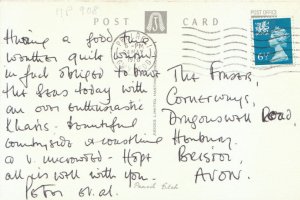 HP 908
POST CARD
POST OFFICE
6½
Having a good time
weather quite warm
in fact obliged to brave
the seas today with
an over enthusiastic
Kharis. Beautiful
countryside & coastline
& v. uncrowded - Hope
all is well with you.
Peter et al.
The Frasers,
Cornerways,
Dragonswell Road,
Henbury,
Bristol,
AVON.